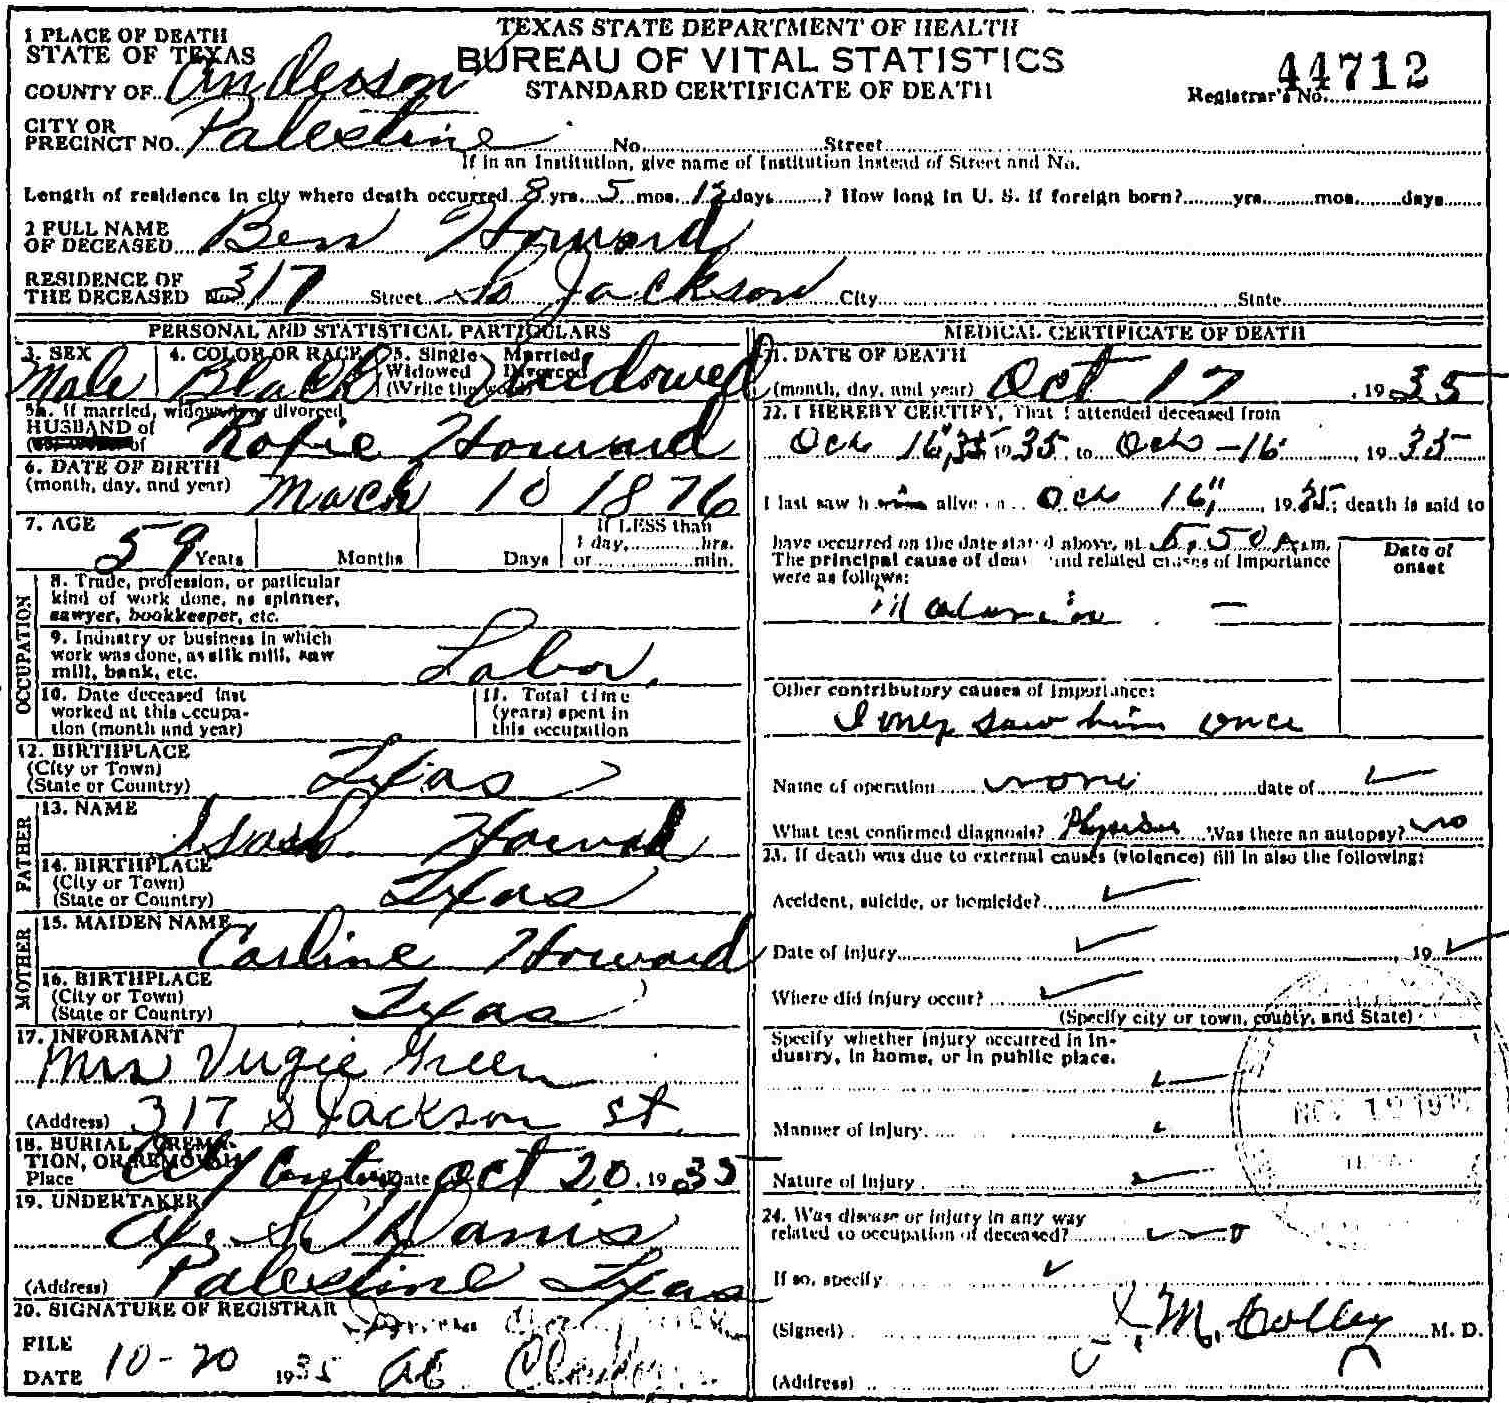 TEXAS STATE DEPARTMENT OF HEALTH
BUREAU OF VITAL STATISTICS
STANDARD CERTIFICATE OF DEATH
44712
Registrar's No.
1 PLACE OF DEATH
STATE OF TEXAS
COUNTY OF Anderson
CITY OR
PRECINCT NO. Palestine No. Street
If in an Institution, give name of Institution instead of Street and No.
Length of residence in city where death occurred 8 yrs. 5 mos. 13 days ? How long in U. S. if foreign born? yrs. mos. days
2 FULL NAME
OF DECEASED Ben Howard
RESIDENCE OF
THE DECEASED No. 317 Street So Jackson City State
PERSONAL AND STATISTICAL PARTICULARS
3. SEX 4. COLOR OR RACE 5. Single Married
Widowed Divorced
(Write the word)
Male Black Widowed
5a. If married, widowed or divorced
HUSBAND of Roxie Howard
of
6. DATE OF BIRTH
(month, day, and year) Mach 10 1876
7. AGE
59 Years Months Days
If LESS than
1 day, hrs.
or min.
OCCUPATION
8. Trade, profession, or particular
kind of work done, as spinner,
sawyer, bookkeeper, etc.
9. Industry or business in which
work was done, as silk mill, saw
mill, bank, etc. Labor.
10. Date deceased last
worked at this occupa-
tion (month and year)
11. Total time
(years) spent in
this occupation
12. BIRTHPLACE
(City or Town)
(State or Country) Texas
FATHER
13. NAME
Howard
14. BIRTHPLACE
(City or Town)
(State or Country) Texas
MOTHER
15. MAIDEN NAME
Carline Howard
16. BIRTHPLACE
(City or Town)
(State or Country) Texas
17. INFORMANT
Mrs Vergie Green
(Address) 317 S Jackson st.
18. BURIAL, CREMA-
TION, OR REMOVAL
Place City Date Oct 20, 1935
19. UNDERTAKER
Davis
(Address) Palestine Texas
20. SIGNATURE OF REGISTRAR
FILE
DATE 10-20 1935
MEDICAL CERTIFICATE OF DEATH
21. DATE OF DEATH
(month, day, and year) Oct 17, 1935
22. I HEREBY CERTIFY, That I attended deceased from
Oct 16, 35 1935 to Oct -16, 1935
I last saw him alive on Oct 16", 1935; death is said to
have occurred on the date stated above, at 5,50 A.m.
The principal cause of death and related causes of importance
were as follows:
Date of
onset
Malaria —
Other contributory causes of importance:
I only saw him once
Name of operation none date of
What test confirmed diagnosis? Was there an autopsy? no
23. If death was due to external causes (violence) fill in also the following:
Accident, suicide, or homicide?
Date of injury , 19
Where did injury occur?
(Specify city or town, county, and State)
Specify whether injury occurred in in-
dustry, in home, or in public place.
Manner of injury
Nature of injury
24. Was disease or injury in any way
related to occupation of deceased? no
If so, specify
(Signed) M. Colley M. D.
(Address)
NOV
TEXAS